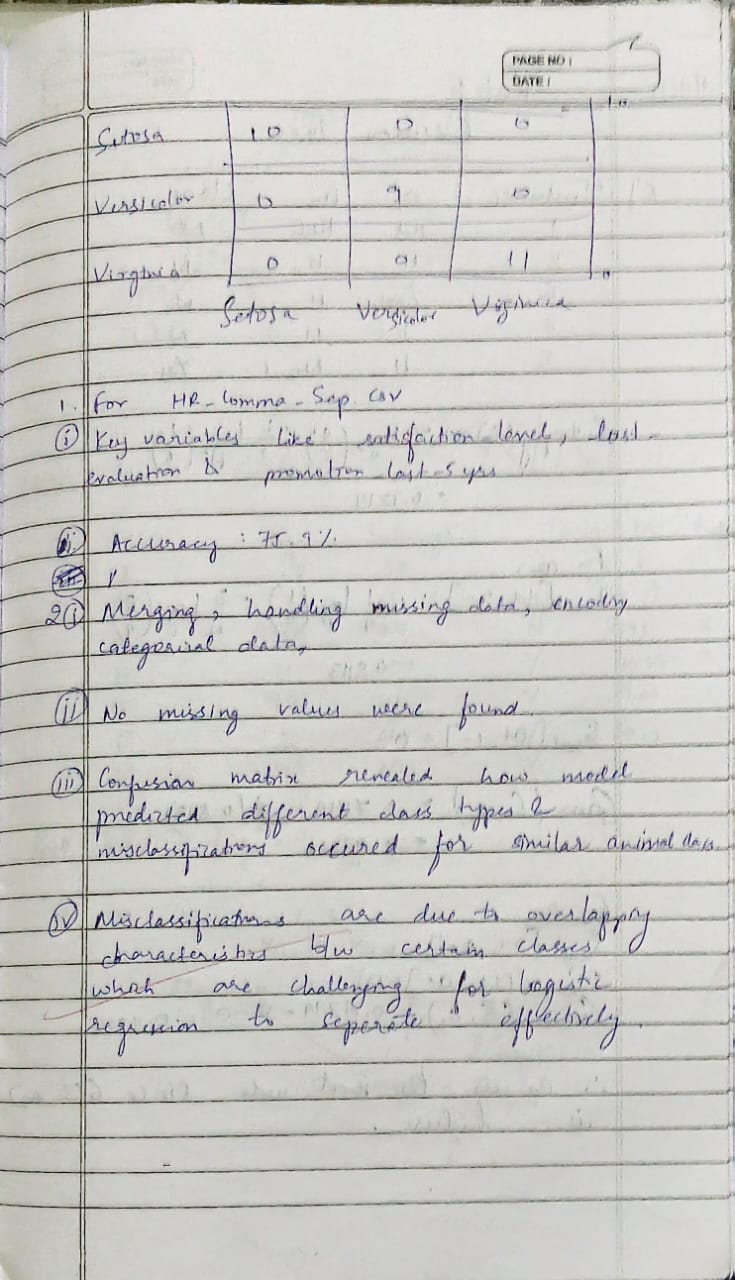 PAGE NO :
DATE :
Setosa 10 0 0
Versicolor 0 9 0
Virginia 0 0 11
Setosa Versicolor Virginica
1. For HR-Comma-Sep. csv
(i) Key variables like satisfaction level, last-
evaluation & promotion-last-5 yrs
(ii) Accuracy : 75.9%
2(i) Merging, handling missing data, encoding
categorical data,
(ii) No missing values were found.
(iii) Confusion matrix revealed how model
predicted different class types &
misclassifications occured for similar animal class.
(iv) Misclassifications are due to overlapping
characteristics b/w certain classes
which are challenging for logistic
regression to seperate effectively.